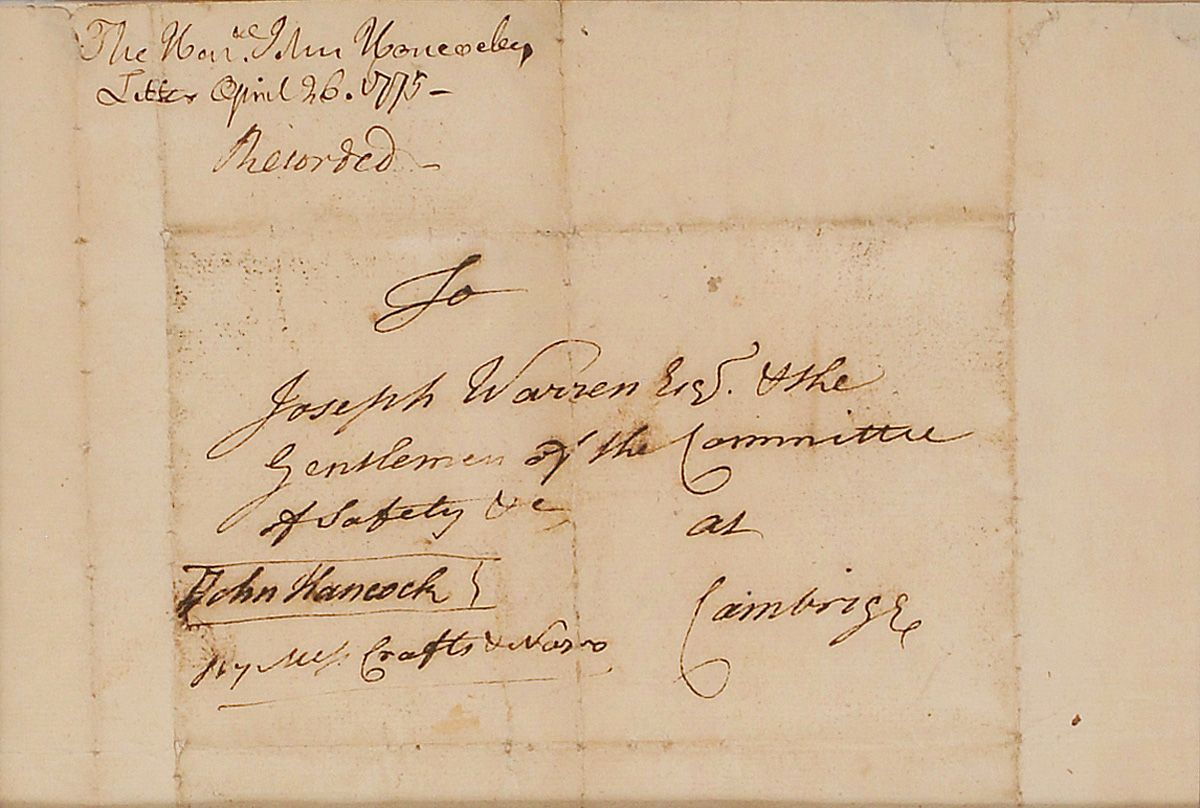 The Hon.ble John Hancocks
Letter April 26. 1775 –
Recorded –
To
Joseph Warren Esqr. & the
Gentlemen of the Committee
of Safety &c
at
John Hancock
Cambridge
by Mess Crafts &